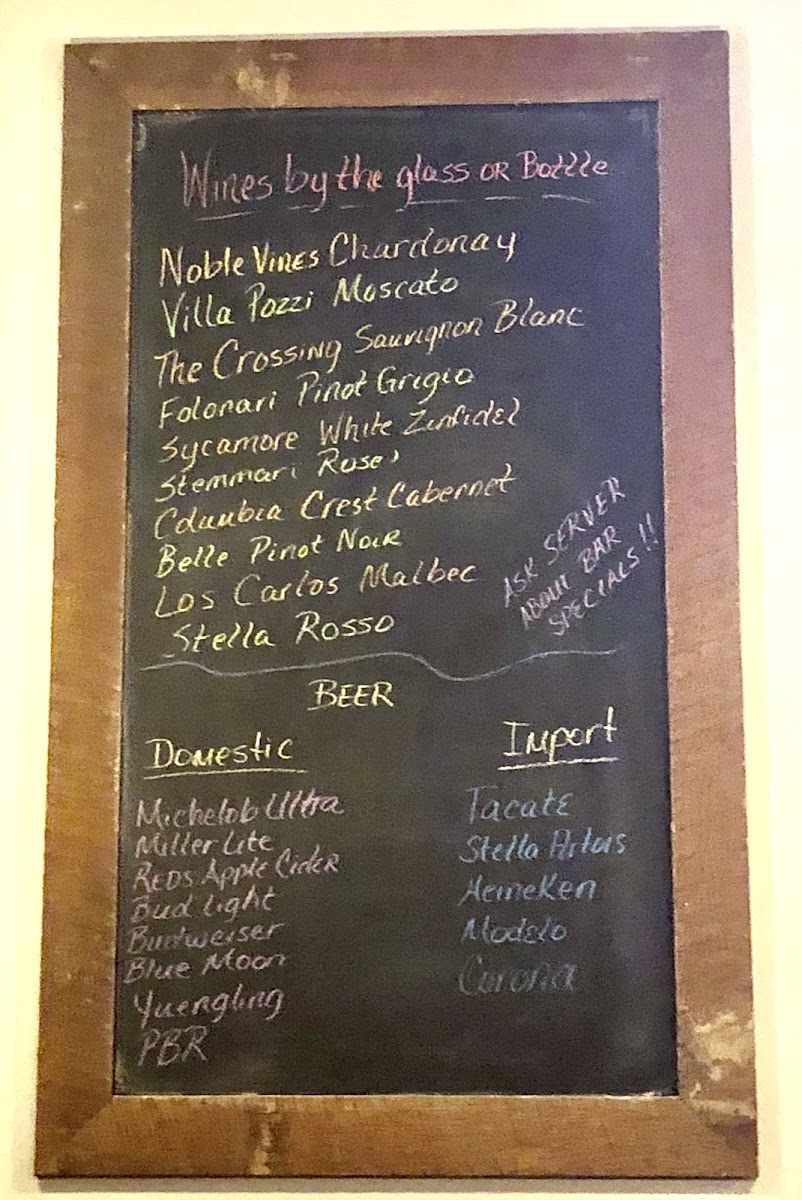 Wines by the glass or Bottle
Noble Vines Chardonay
Villa Pozzi Moscato
The Crossing Sauvignon Blanc
Folonari Pinot Grigio
Sycamore White Zinfidel
Stemmari Rose'
Columbia Crest Cabernet
Belle Pinot Noir
Los Carlos Malbec
Stella Rosso
ASK SERVER
ABOUT BAR
SPECIALS!!
BEER
Domestic
Michelob Ultra
Miller Lite
REDS Apple Cider
Bud Light
Budweiser
Blue Moon
Yuengling
PBR
Import
Tacate
Stella Artois
Heineken
Modelo
Corona